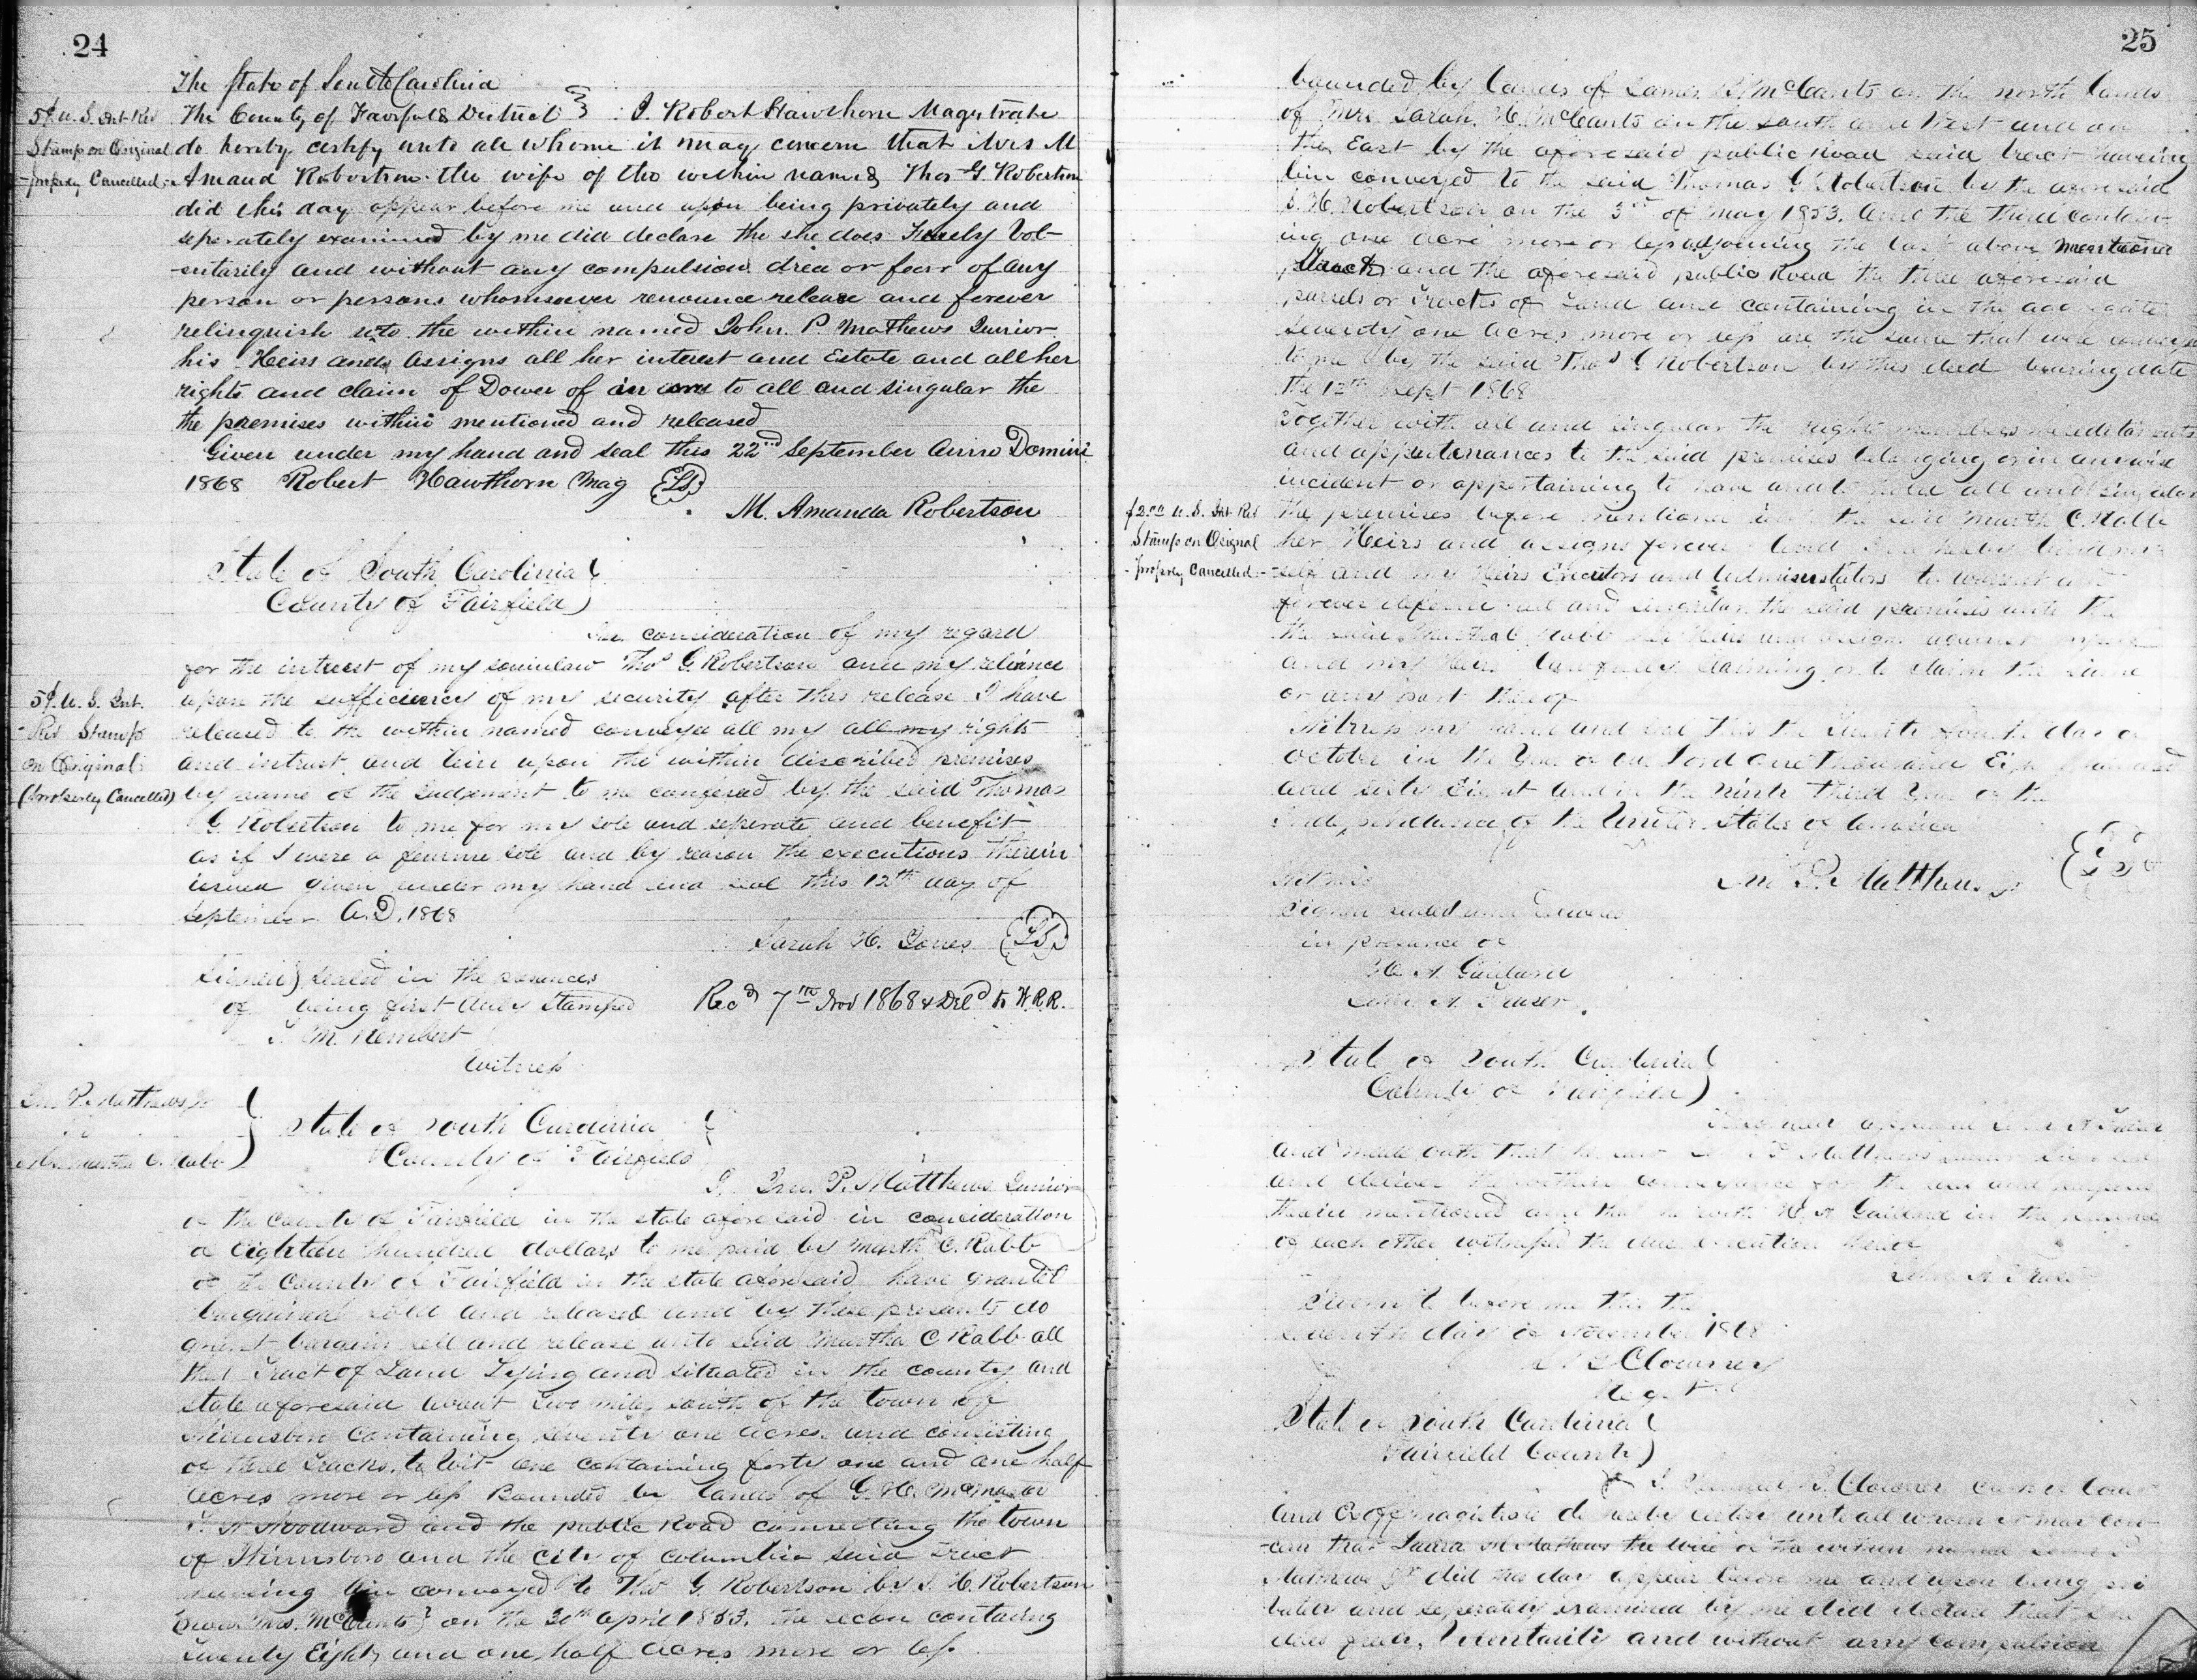 24
The State of South Carolina
The County of Fairfield District } I Robert Hawthorn Magistrate
5¢ U. S. Int Rev
Stamp on Original
properly Cancelled
do hereby certify unto all whome it may concern that Mrs M
Amand Robertson the wife of the within named Thos G. Robertson
did this day appear before me and upon being privately and
seperately examined by me did declare the she does Freely Vol-
entarily and without any compulsion drea or fear of any
person or persons whomsoever renounce release and forever
relinquish unto the within named John. P. Mathews Junior
his Heirs and Assigns all her interest and Estate and all her
rights and claim of Dower of in to all and singular the
the premises within mentioned and released
Given under my hand and seal this 22nd September Anno Domini
1868 Robert Hawthorn Mag LS
M. Amanda Robertson
State of South Carolina
County of Fairfield
In consideration of my regard
for the intrest of my soninlaw Thos G. Robertson and my reliance
upon the sufficiency of my security after this release I have
5¢. U. S. Int.
Rev Stamp
on Original
(properly Cancelled)
released to the within named conveyee all my all my rights
and intrust and lien upon the within discribed premises
by name of the Judgement to me confesed by the said Thomas
G Robertson to me for my sole and seperate and benefit
as if I were a femme sole and by reason the executions therein
issued given under my hand and seal this 12th day of
September A.D. 1868
Sarah H. Jones LS
Signed sealed in the presences
of being first duly Stamped
Recd 7th Nov 1868 & Deld to W.R.R.
T. M. Rembert
Witness
Jno P. Matthews Jr
to
Martha C. Rabb
State of South Carolina
County of Fairfield
I. Jno. P. Matthews Junior
of the County of Fairfield in the state aforesaid in consideration
of Eighteen hundred dollars to me paid by Marth C. Rabb
of the County of Fairfield in the state aforesaid have granted
bargained sold and released and by these presents do
grant bargain sell and release unto said Martha C Rabb all
that Tract of Land Lying and situated in the county and
state aforesaid about Two miles south of the town of
Winnsboro Containing seventy one acres and consisting
of three Tracks, to Wit one containing forty one and one half
acres more or less Bounded by lands of G. H. McMaster
T. W. Woodward and the public Road connecting the town
of Winnsboro and the city of Columbia said Tract
haveing bin conveyed to Thos G Robertson by S. H. Robertson
(now Mrs. McCants) on the 30th April 1853. the secon containg
Twenty Eight and one half acres more or less
25
bounded by lands of James B. McCants on the north lands
of Mrs Sarah. H. McCants on the south and West and on
the East by the aforesaid public Road said tract haveing
bin conveyed to the said Thomas G Robertson by the aforesaid
S. H. Robertson on the 3rd of May 1853. and the third contain-
ing one acre more or less adjoining the last above mentiond
Track and the aforesaid public Road the three aforesaid
parsels or Tracts of Land and containing in the aggregate
seventy one acres more or less are the same that were conveyd
to me by the said Thos G Robertson by this deed bearing date
the 12th Sept 1868
Together with all and singular the rights members hereditaments
and appurtenances to the said premises belonging or in anywise
incident or appertaining to have and to hold all and singular
$2.00 U. S. Int Rev
Stamp on Original
properly Cancelled
the premises before mentiond unto the said Marth C. Rabb
her Heirs and assigns forever And I do hereby bind my
self and my Heirs Executors and Administrators to warrant and
forever defend all and singular the said premises unto the
the said Martha C Rabb her Heirs and assigns against myself
and my Heirs lawfully claiming or to claim the same
or any part there of
Witness my hand and seal this the Twenty fourth day of
October in the year of our Lord one Thousand Eight hundred
and sixty Eight and in the ninty third year of the
Independence of the United States of America
Jno P. Matthews Jr LS
Witness
Signed sealed and Delivered
in presence of
H. A. Gaillard
John A. Fraser
State of South Carolina
County of Fairfield
Personally appeared John A Fraser
and made oath that he saw Jno P Matthews Junior sign seal
and deliver the within conveyance for the uses and purposes
therein mentioned and that he with H. A Gaillard in the presence
of each other witnessed the due execution thereof
John A Fraser
Sworn to before me this the
seventh day of November 1868
Clowney
State of South Carolina
Fairfield County
I Clowney
and Exoff magistrate do hereby certify unto all whom it may con-
cern that Laura M Mathews the wife of the within named
Mathews Jr did this day appear before me and upon being pri
vately and seperately examined by me did declare that she
does freely, Volentarily and without any compulsion